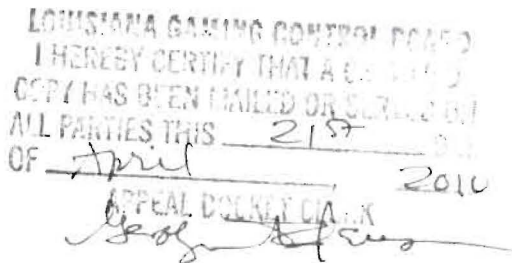 LOUISIANA GAMING CONTROL BOARD
I HEREBY CERTIFY THAT A CERTIFIED
COPY HAS BEEN MAILED OR SERVED ON
ALL PARTIES THIS 21st DAY
OF April, 2010
APPEAL DOCKET CLERK